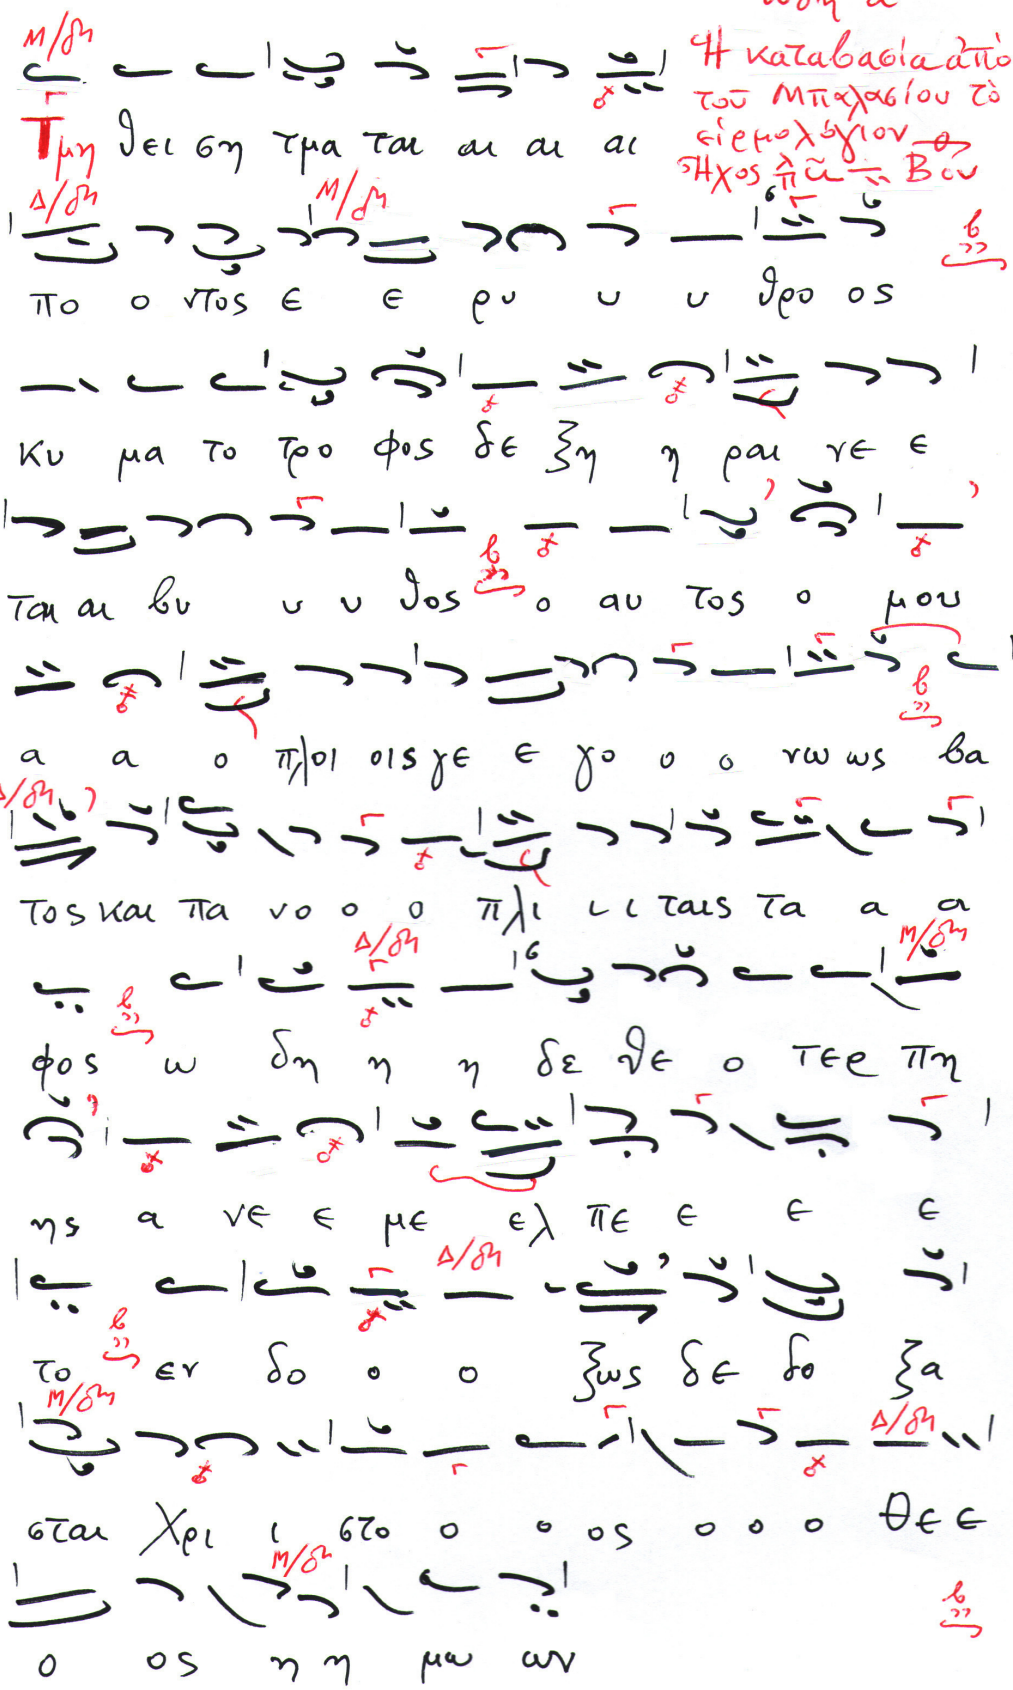 ᾠδὴ α
Ἡ καταβασία ἀπὸ
τοῦ Μπαλασίου τὸ
εἱρμολόγιον
Ἦχος λ π α Βου
Μ/δη
Τμη θει ση τμα ται αι αι αι
Δ/δη Μ/δη
πο ο ντος ε ε ρυ υ υ θρο ος
κυ μα το τρο φος δε ξη η ραι νε ε
ται αι βυ υ υ θος ο αυ τος ο μου
α α ο πλοι οις γε ε γο ο ο νω ως βα
Δ/δη
τος και πα νο ο ο πλι ι ι ταις τα α α
Δ/δη Μ/δη
φος ω δη η η δε θε ο τερ πη
ης α νε ε με ελ πε ε ε ε
Δ/δη
το εν δο ο ο ξως δε δο ξα
Μ/δη Δ/δη
σται Χρι ι στο ο ο ος ο ο ο Θε ε
Μ/δη
ο ος η η μω ων